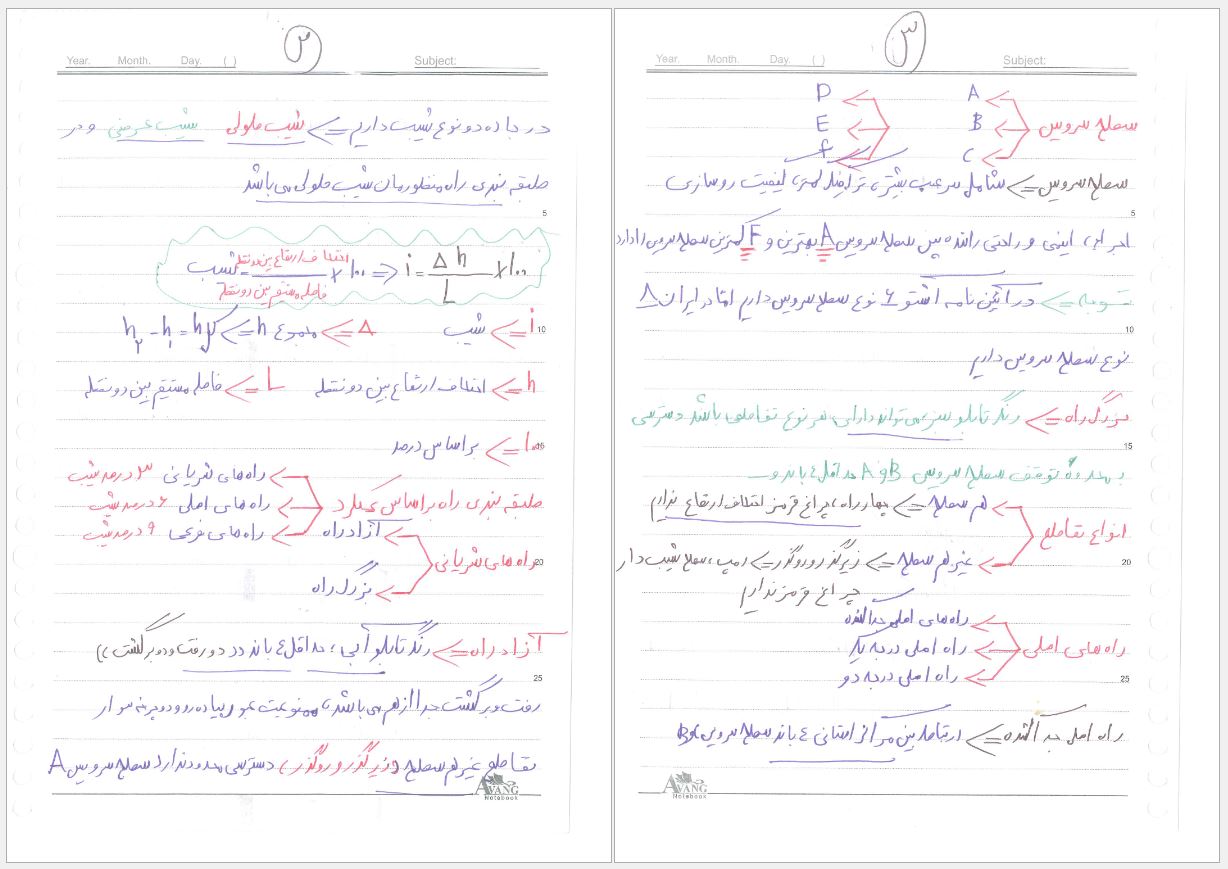 ۲
Year. Month. Day. ( ) Subject:
در جاده دو نوع شیب داریم <= شیب طولی شیب عرضی و در
طبقه بندی راه منظورمان شیب طولی می باشد
5
شیب = اختلاف ارتفاع بین دو نقطه / فاصله مستقیم بین دو نقطه × ۱۰۰ => i = Δh / L × ۱۰۰
10
i <= شیب Δ <= مجموع h <= h₂ - h₁ = h
h <= اختلاف ارتفاع بین دو نقطه L <= فاصله مستقیم بین دو نقطه
15
۱۰۰ <= براساس درصد
طبقه بندی راه براساس عملکرد
راه های شریانی ۳ درصد شیب
راه های اصلی ۶ درصد شیب
راه های فرعی ۹ درصد شیب
20
راه های شریانی
آزادراه
بزرگراه
آزاد راه <= رنگ تابلو آبی ، حداقل ۴ باند (( دو رفت و دو برگشت ))
25
رفت و برگشت جدا از هم می باشد، ممنوعیت عبور پیاده رو و دوچرخه سوار
تقاطع غیر هم سطح (زیرگذر و روگذر) دسترسی محدود ندارد سطح سرویس A
AVANG
Notebook
۳
Year. Month. Day. ( ) Subject:
سطح سرویس
A D
B E
C F
سطح سرویس <= شامل سرعت بیشتر، ترافیک کمتر، کیفیت روسازی
5
اجرایی، ایمنی و راحتی راننده پس سطح سرویس A بهترین و F کمترین سطح سرویس را دارد
توجه <= در آئین نامه اشتو ۶ نوع سطح سرویس داریم اما در ایران ۸
10
نوع سطح سرویس داریم
بزرگراه <= رنگ تابلو سبز، می تواند دارای هر نوع تقاطعی باشد دسترسی
15
محدوده توقف سطح سرویس A و B حداقل ۴ باند
انواع تقاطع
هم سطح <= چهارراه، چراغ قرمز اختلاف ارتفاع نداریم
20
غیر هم سطح <= زیرگذر و روگذر <= رمپ ، سطح شیب دار
چراغ قرمز نداریم
راه های اصلی
راه های اصلی جداکننده
راه اصلی درجه یک
25
راه اصلی درجه دو
راه اصلی جداکننده <= ارتباط بین مراکز استانی ۴ باند سطح سرویس B
AVANG
Notebook